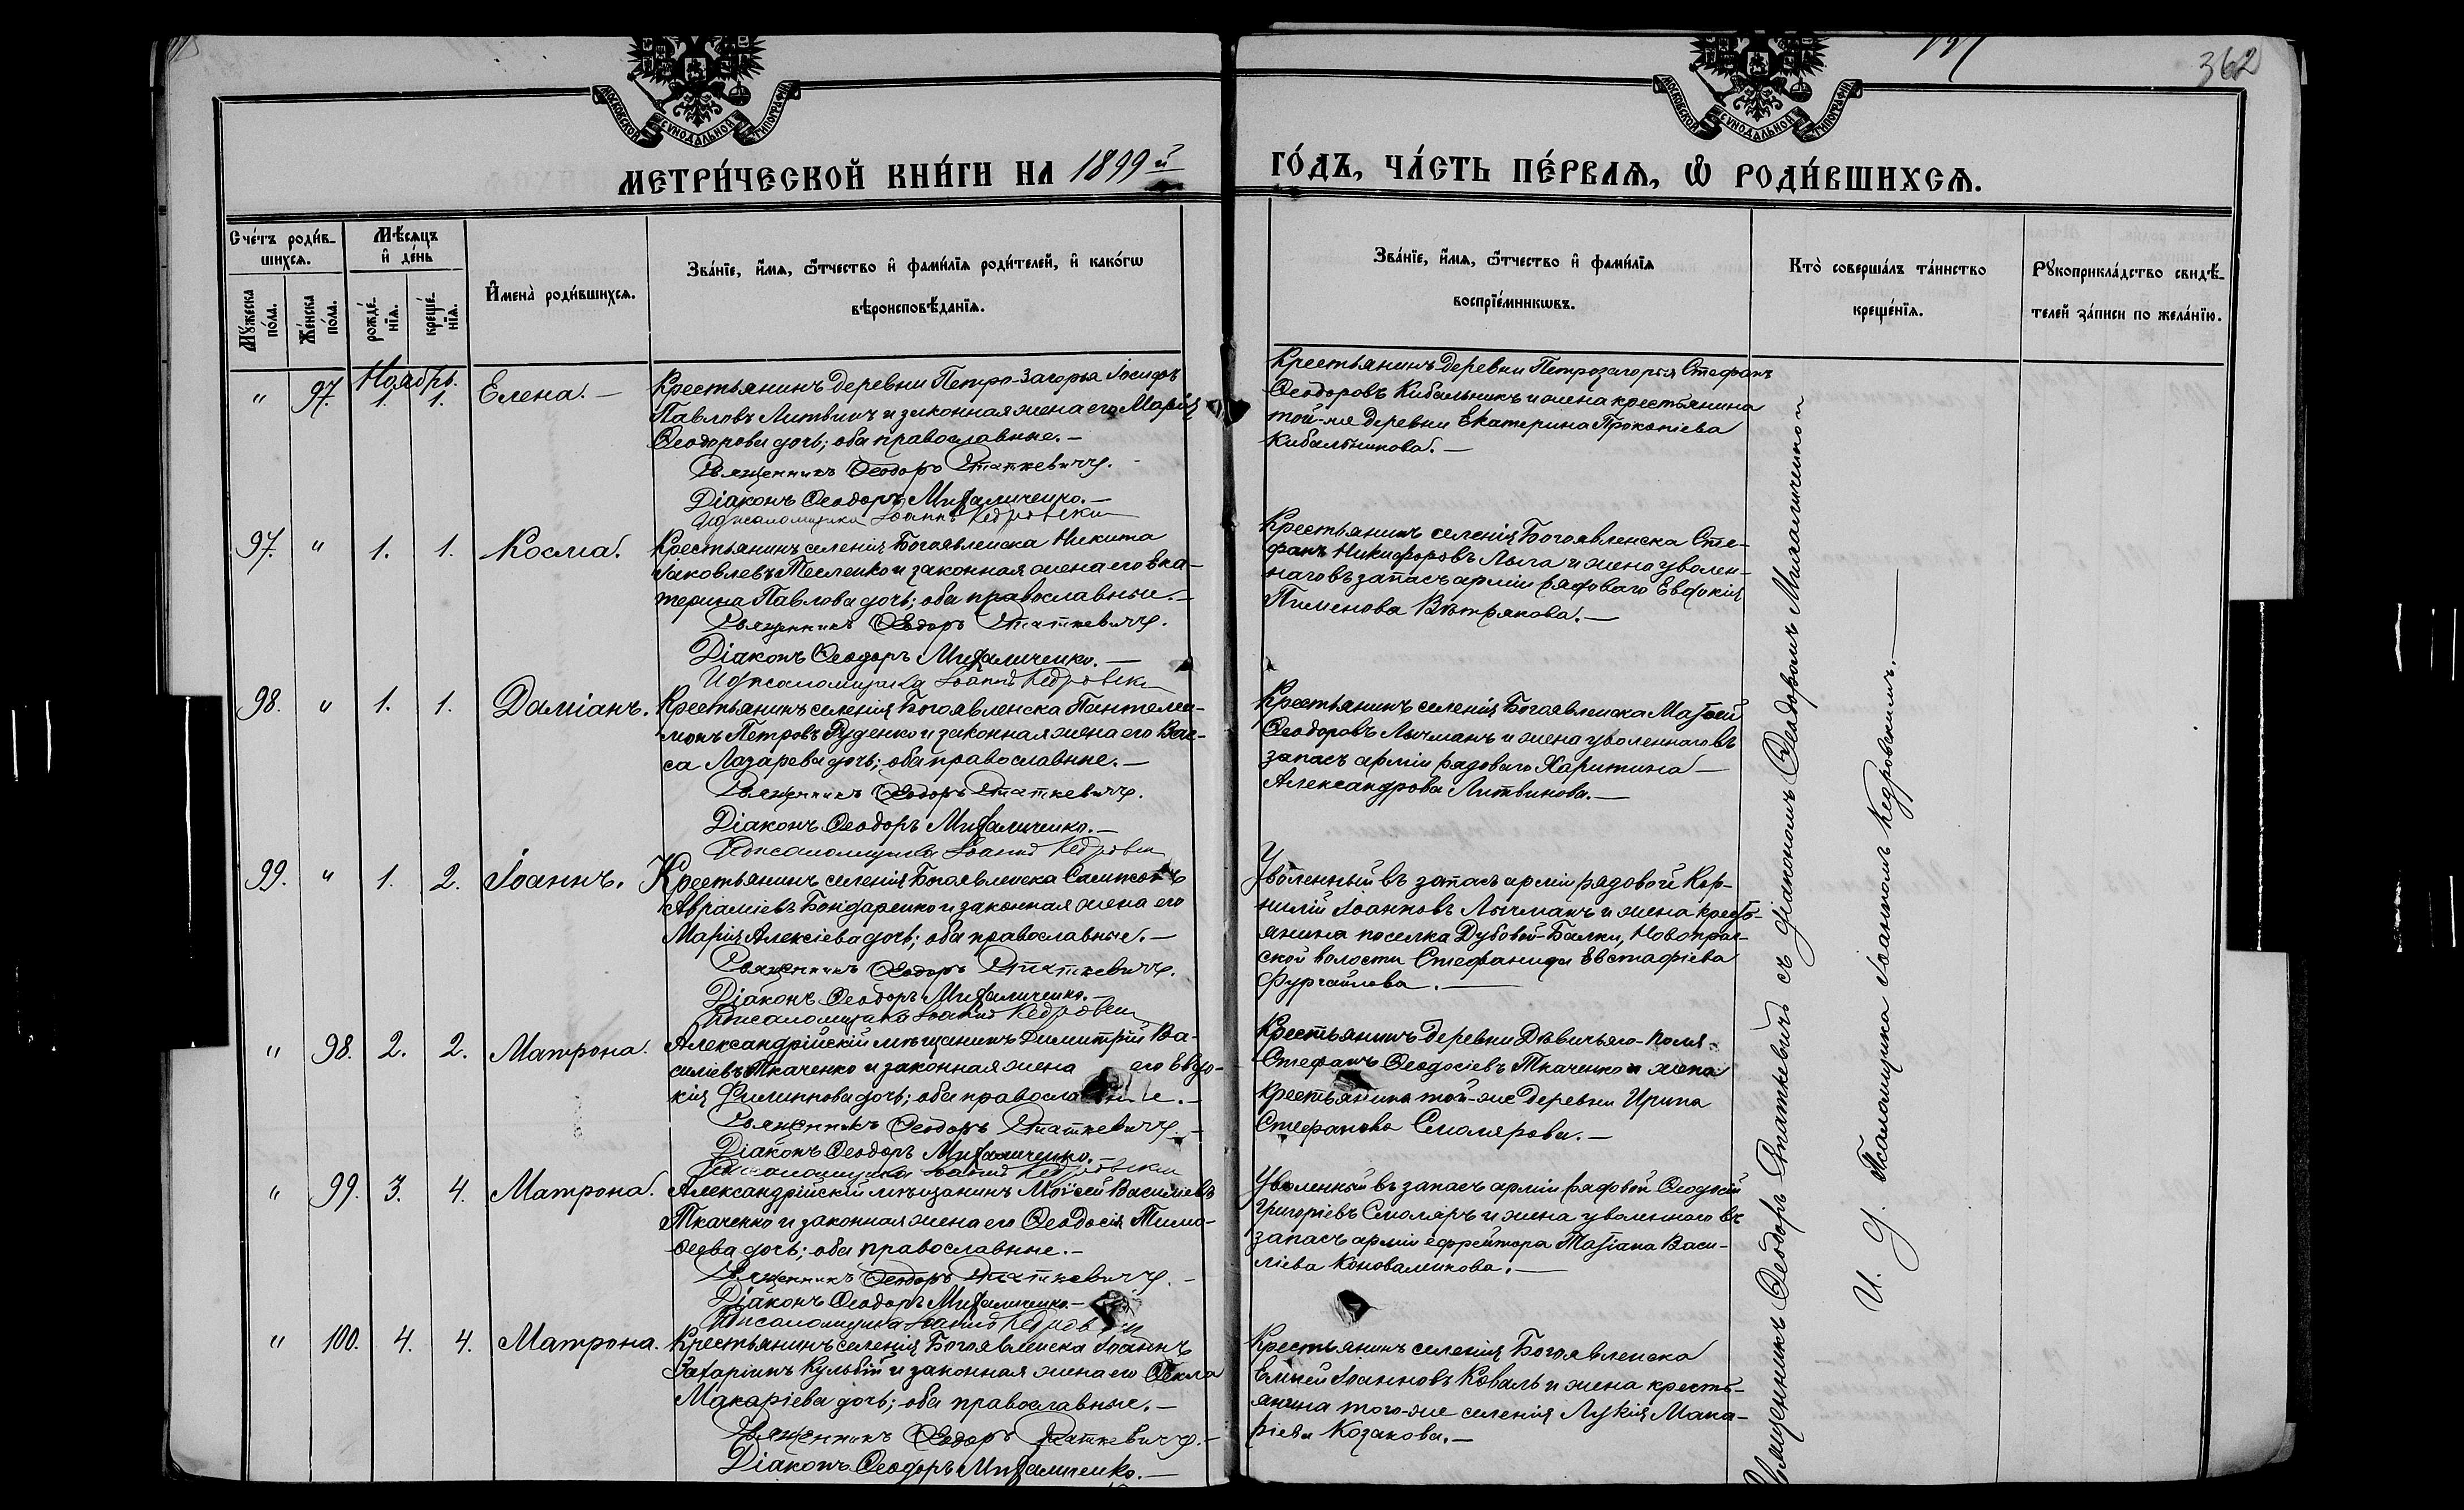 362
МОСКОВСКОЙ СѴНОДАЛЬНОЙ ТИПОГРАФІИ
МОСКОВСКОЙ СѴНОДАЛЬНОЙ ТИПОГРАФІИ
МЕТРИ́ЧЕСКОЙ КНИ́ГИ НА 1899й
ГО́ДЪ, ЧА́СТЬ ПЕ́РВАѦ, Ѡ҆ РОДИ́ВШИХСѦ.
Сче́тъ роди́в-
шихсѧ.
Мꙋ́жеска по́ла.
Же́нска по́ла.
Мѣ́сѧцъ
и҆ де́нь
рожде́-
нїѧ.
креще́-
нїѧ.
И҆мена̀ роди́вшихсѧ.
Зва́нїе, и҆́мѧ, ѻ҆́тчество и҆ фами́лїѧ роди́телей, и҆ како́гѡ
вѣроисповѣ́данїѧ.
Зва́нїе, и҆́мѧ, ѻ҆́тчество и҆ фами́лїѧ
воспрїе́мникѡвъ.
Кто̀ соверша́лъ та́инство
креще́нїѧ.
Рꙋкоприкла́дство свидѣ́-
телей за́писи по жела́нїю.
Ноябрь.
" 97. 1. 1. Елена. —
Крестьянинъ деревни Петро-Загорья Іосифъ
Павловъ Литвинъ и законная жена его Марія
Ѳеодорова дочь; оба православные. —
Священникъ Ѳеодоръ Статкевичъ.
Діаконъ Ѳеодоръ Михаличенко. —
И д псаломщика Іоаннъ Кедровскій
Крестьянинъ деревни Петрозагорья Стефанъ
Ѳеодоровъ Кибальникъ и жена крестьянина
той-же деревни Екатерина Прокопіева
Кибальникова. —
97. " 1. 1. Косма.
Крестьянинъ селенія Богоявленска Никита
Іаковлевъ Тесленко и законная жена его Ека-
терина Павлова дочь; оба православные. —
Священникъ Ѳеодоръ Статкевичъ.
Діаконъ Ѳеодоръ Михаличенко. —
И д псаломщика Іоаннъ Кедровскій
Крестьянинъ селенія Богоявленска Сте-
фанъ Никифоровъ Лыга и жена уволен-
наго въ запасъ арміи рядоваго Евдокія
Пименова Вѣтрякова. —
98. " 1. 1. Даміанъ.
Крестьянинъ селенія Богоявленска Пантелеи-
монъ Петровъ Руденко и законная жена его Вас-
са Лазарева дочь; оба православные. —
Священникъ Ѳеодоръ Статкевичъ.
Діаконъ Ѳеодоръ Михаличенко. —
И д псаломщика Іоаннъ Кедровскій
Крестьянинъ селенія Богоявленска Матѳей
Ѳеодоровъ Лычманъ и жена уволеннаго въ
запасъ арміи рядоваго Харитина —
Александрова Литвинова. —
99. " 1. 2. Іоаннъ.
Крестьянинъ селенія Богоявленска Сампсонъ
Авраміевъ Бондаренко и законная жена его
Марія Алексіева дочь; оба православные. —
Священникъ Ѳеодоръ Статкевичъ.
Діаконъ Ѳеодоръ Михаличенко. —
И д псаломщика Іоаннъ Кедровскій
Уволенный въ запасъ арміи рядовой Кор-
нилій Іоанновъ Лычманъ и жена кресть-
янина поселка Дубовой-Балки, Новопраж-
ской волости Стефанида Евстафіева
. —
" 98. 2. 2. Матрона.
Александрійскій мѣщанинъ Димитрій Ва-
силіевъ Ткаченко и законная жена его Евдо-
кія Филиппова дочь; оба православные. —
Священникъ Ѳеодоръ Статкевичъ. —
Діаконъ Ѳеодоръ Михаличенко.
И д псаломщика Іоаннъ Кедровскій
Крестьянинъ деревни Дѣвичьяго-Поля
Стефанъ Ѳеодосіевъ Ткаченко и жена
крестьянина той-же деревни Ирина
Стефанова Смолярова. —
" 99. 3. 4. Матрона.
Александрійскій мѣщанинъ Моѵсей Василіевъ
Ткаченко и законная жена его Ѳеодосія Тимо-
ѳеева дочь; оба православные. —
Священникъ Ѳеодоръ Статкевичъ. —
Діаконъ Ѳеодоръ Михаличенко. —
И д псаломщика Іоаннъ Кедровскій
Уволенный въ запасъ арміи рядовой Ѳеодосій
Григоріевъ Смоляръ и жена уволеннаго въ
запасъ арміи ефрейтора Татіана Васи-
ліева Коноваленкова. —
" 100. 4. 4. Матрона.
Крестьянинъ селенія Богоявленска Іоаннъ
Захаріинъ Кульбій и законная жена его Ѳекла
Макаріева дочь; оба православные. —
Священникъ Ѳеодоръ Статкевичъ. —
Діаконъ Ѳеодоръ Михаличенко. —
Крестьянинъ селенія Богоявленска
Елисей Іоанновъ Коваль и жена кресть-
янина того-же селенія Лукія Мака-
ріева Козакова. —
Священникъ Ѳеодоръ Статкевичъ съ діакономъ Ѳеодоромъ Михаличенкомъ
И. д. Псаломщика Іоанномъ Кедровскимъ. —